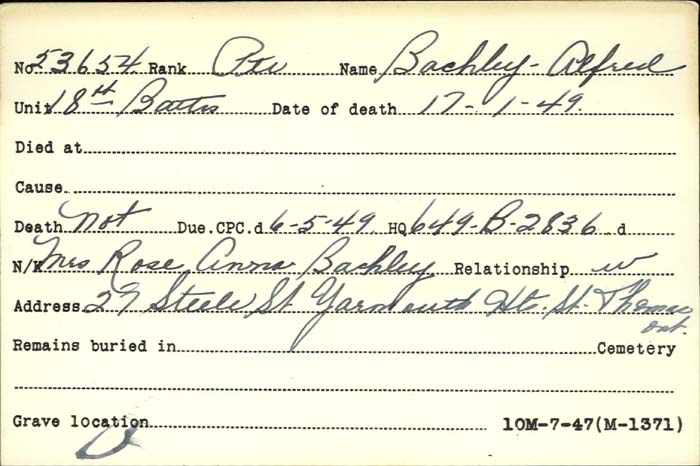 No 53654 Rank Pte Name Bachley - Alfred
Unit 18th Battn Date of death 17-1-49.
Died at
Cause
Death not Due. CPC.d 6-5-49 HQ 649-B-2836 d
N/K Mrs Rose Anna Bachley Relationship w
Address 29 Steele St Yarmouth Hts. St. Thomas
ont.
Remains buried in Cemetery
Grave location 10M-7-47(M-1371)